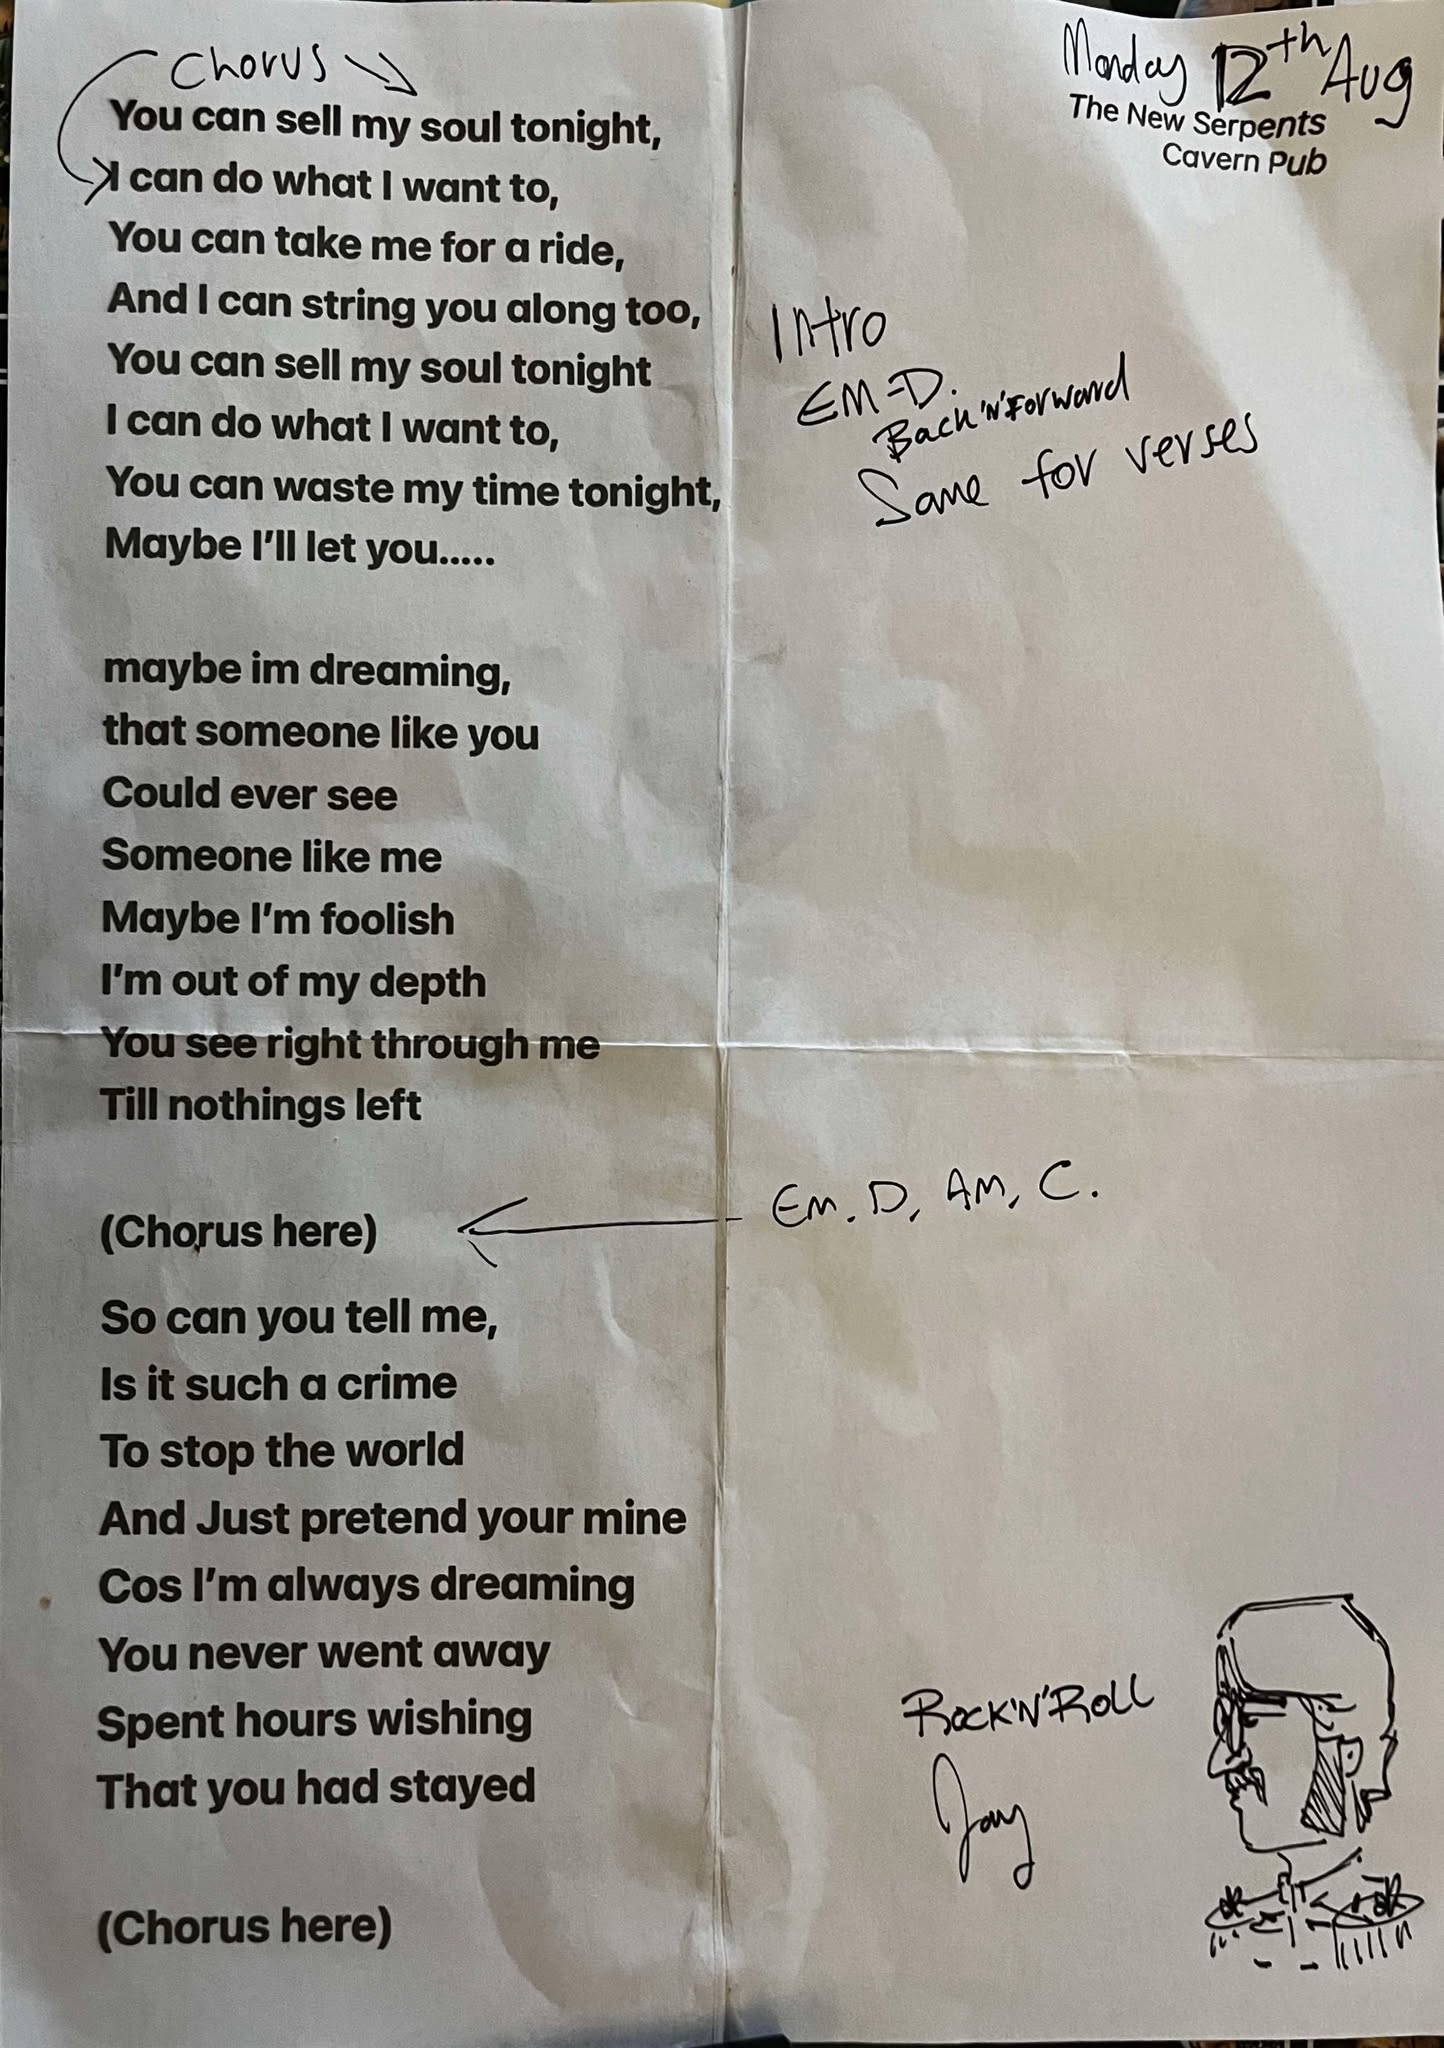 Chorus
You can sell my soul tonight,
I can do what I want to,
You can take me for a ride,
And I can string you along too,
You can sell my soul tonight
I can do what I want to,
You can waste my time tonight,
Maybe I'll let you.....
maybe im dreaming,
that someone like you
Could ever see
Someone like me
Maybe I'm foolish
I'm out of my depth
You see right through me
Till nothings left
(Chorus here)
So can you tell me,
Is it such a crime
To stop the world
And Just pretend your mine
Cos I'm always dreaming
You never went away
Spent hours wishing
That you had stayed
(Chorus here)
Monday 12th Aug
The New Serpents
Cavern Pub
Intro
EM-D.
Back 'N' Forward
Same for verses
Em. D, AM, C.
ROCK'N'ROLL
Jay